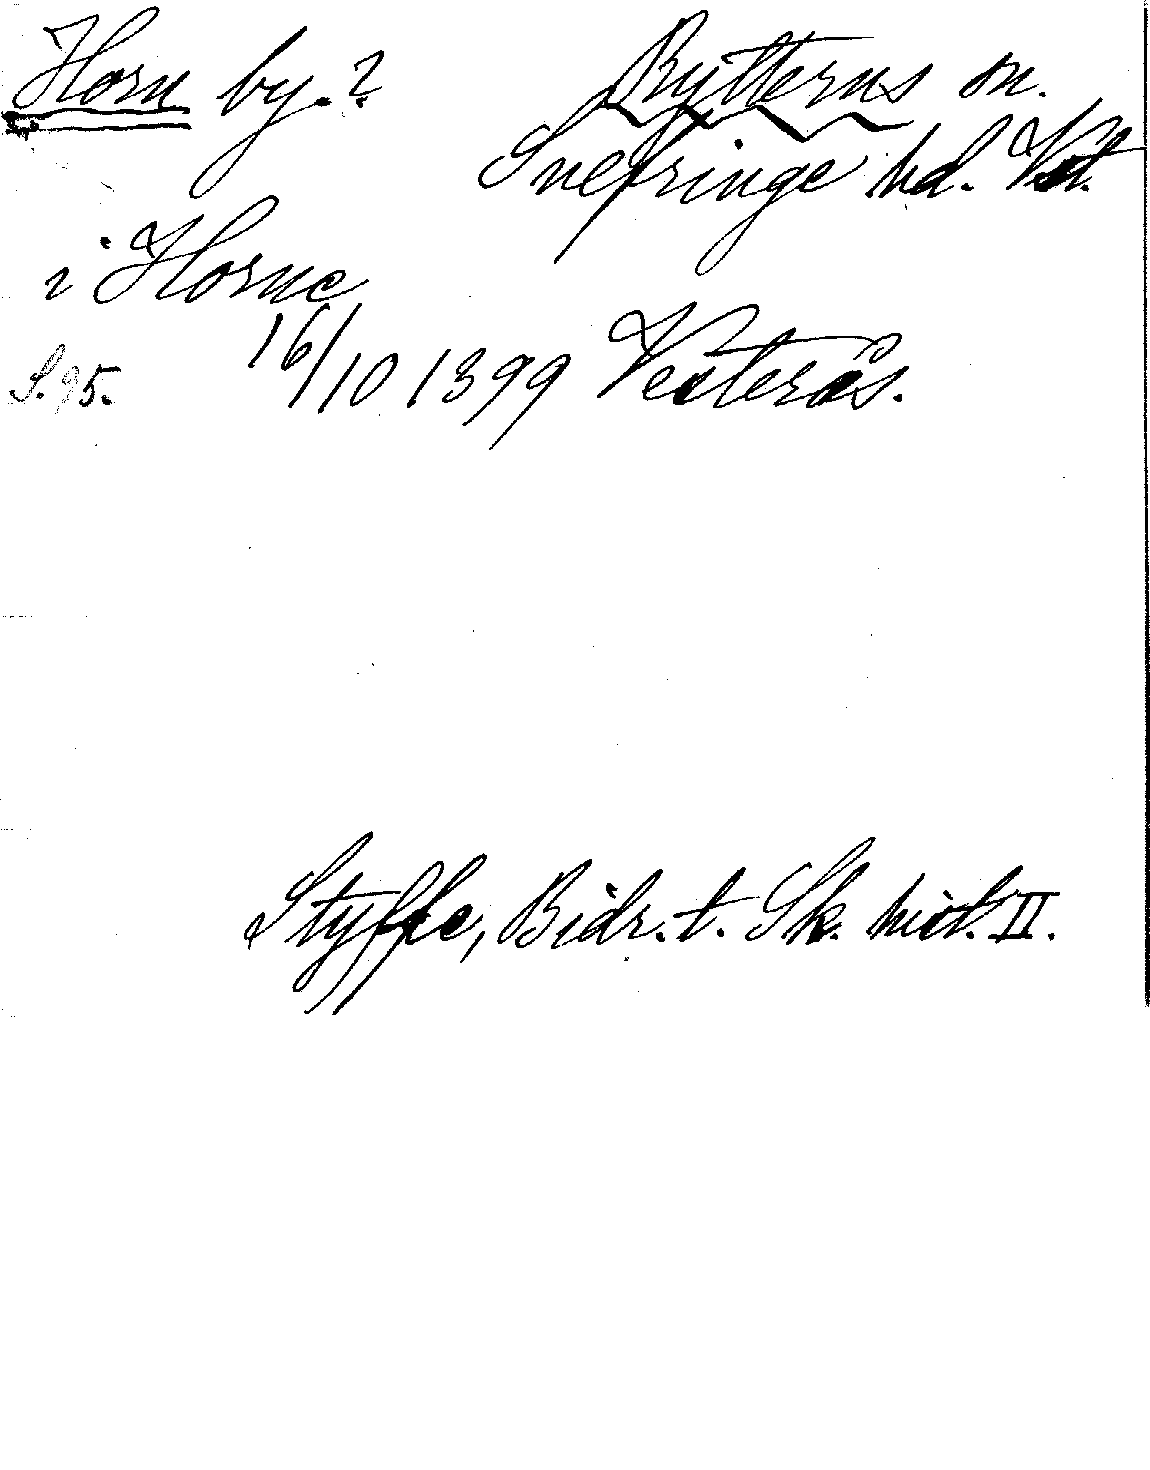 Horn by.? Rytterns sn.
Snefringe hd. Vstl.
i Horne
16/10 1399 Vesterås.
S. 95.
Styffe, Bidr. t. Sk. hist. II.